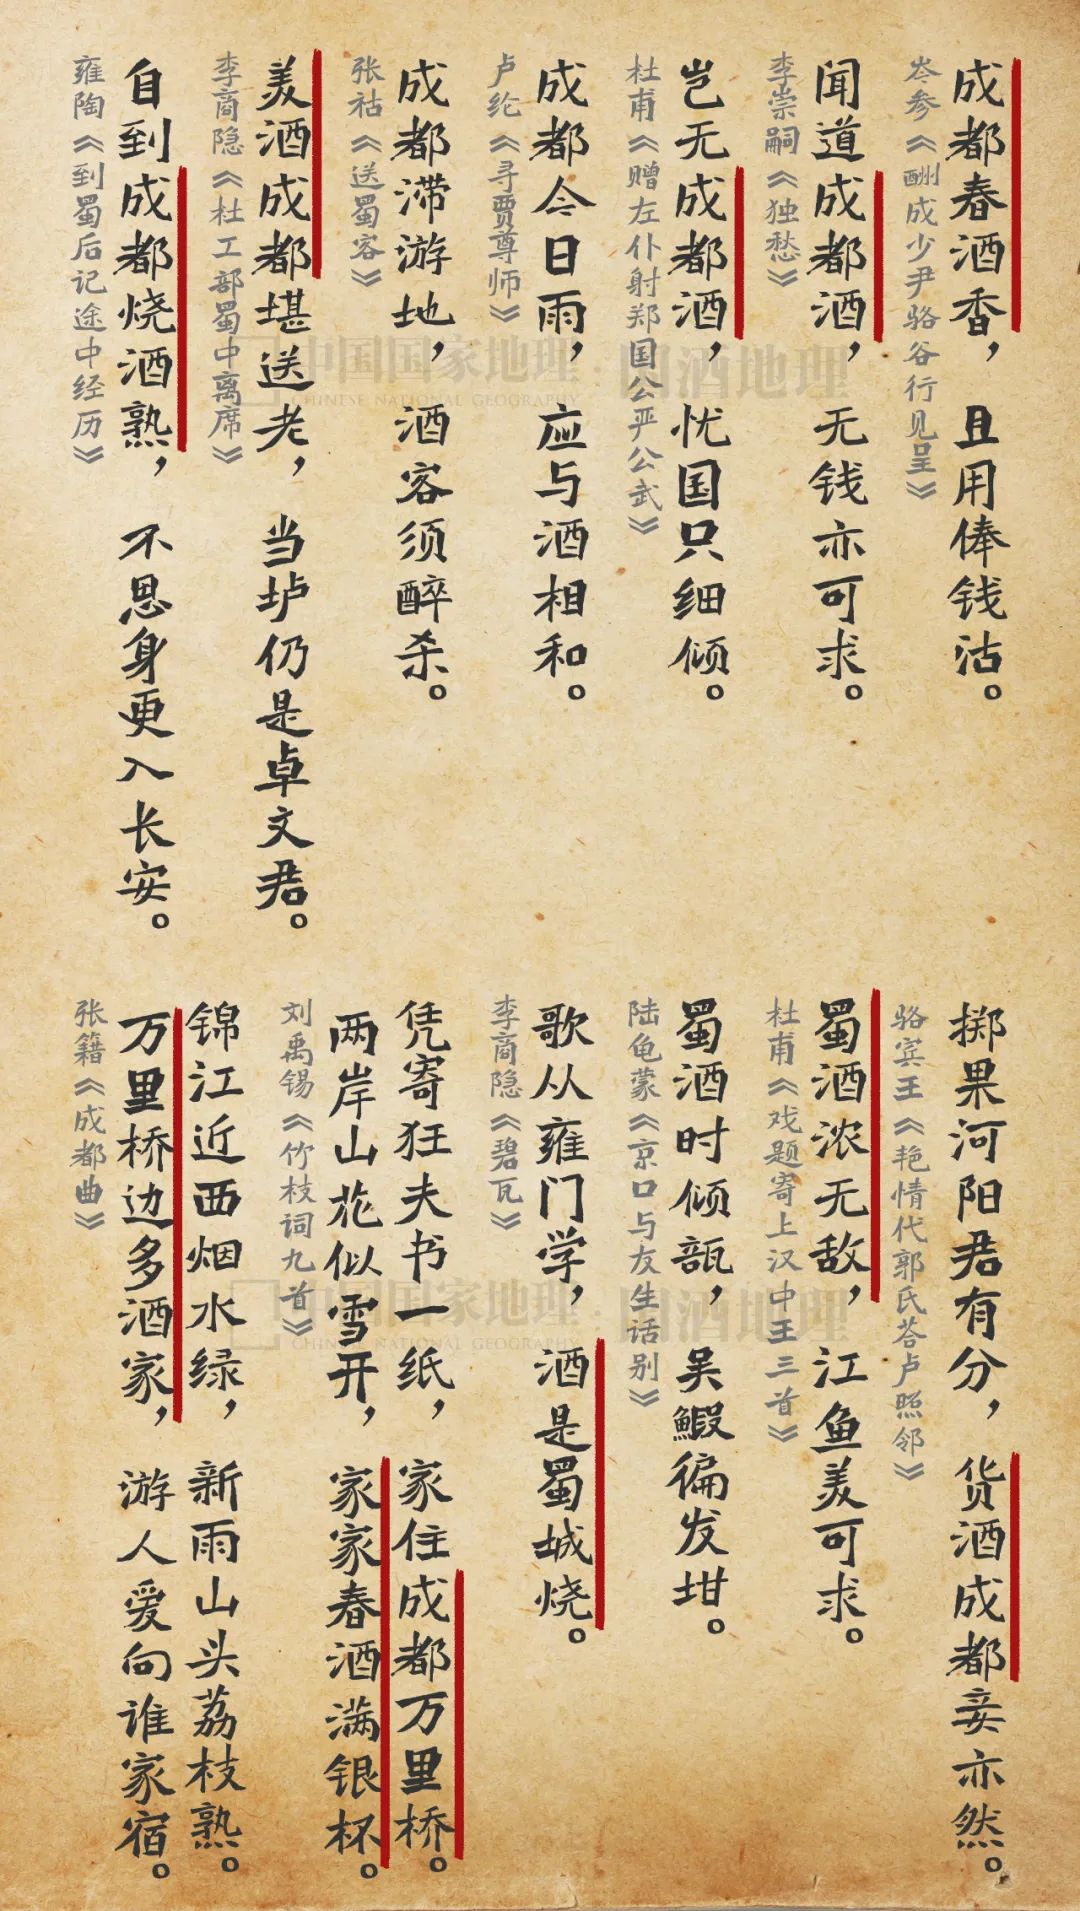 成都春酒香，且用俸钱沽。
岑参《酬成少尹骆谷行见呈》
闻道成都酒，无钱亦可求。
李崇嗣《独愁》
岂无成都酒，忧国只细倾。
杜甫《赠左仆射郑国公严公武》
成都今日雨，应与酒相和。
卢纶《寻贾尊师》
成都滞游地，酒客须醉杀。
张祜《送蜀客》
美酒成都堪送老，当垆仍是卓文君。
李商隐《杜工部蜀中离席》
自到成都烧酒熟，不思身更入长安。
雍陶《到蜀后记途中经历》
掷果河阳君有分，货酒成都妾亦然。
骆宾王《艳情代郭氏答卢照邻》
蜀酒浓无敌，江鱼美可求。
杜甫《戏题寄上汉中王三首》
蜀酒时倾瓿，吴鰕遍发坩。
陆龟蒙《京口与友生话别》
歌从雍门学，酒是蜀城烧。
李商隐《碧瓦》
凭寄狂夫书一纸，家住成都万里桥。
两岸山花似雪开，家家春酒满银杯。
刘禹锡《竹枝词九首》
锦江近西烟水绿，新雨山头荔枝熟。
万里桥边多酒家，游人爱向谁家宿。
张籍《成都曲》
中国国家地理
CHINESE NATIONAL GEOGRAPHY
中国国家地理
CHINESE NATIONAL GEOGRAPHY